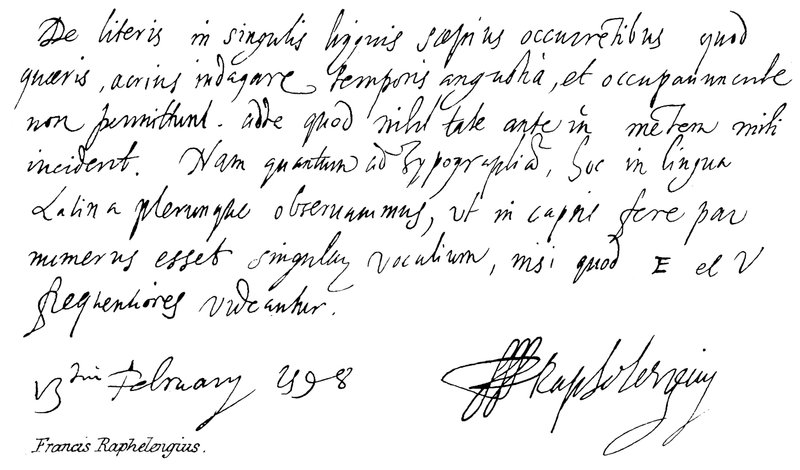 De literis in singulis linguis sæpius occurrētibus quod
quæris, acrius indagare temporis angustiā, et
non permittunt. adde quod nihil tale ante in mētem mihi
inciderit. Nam quantum ad typographiā, hoc in lingua
Latina plerunque observavimus, vt in capsis fere par
numerus esset singular vocalium, nisi quod E et V
frequentiores videantur.
February 1598
Raphelengius
Francis Raphelengius.